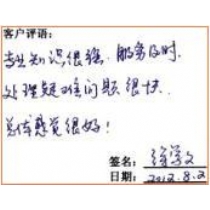 客户评语:
专业知识很强, 服务及时.
处理疑难问题很快.
总体感觉很好!
签名:
日期: 2012.8.2